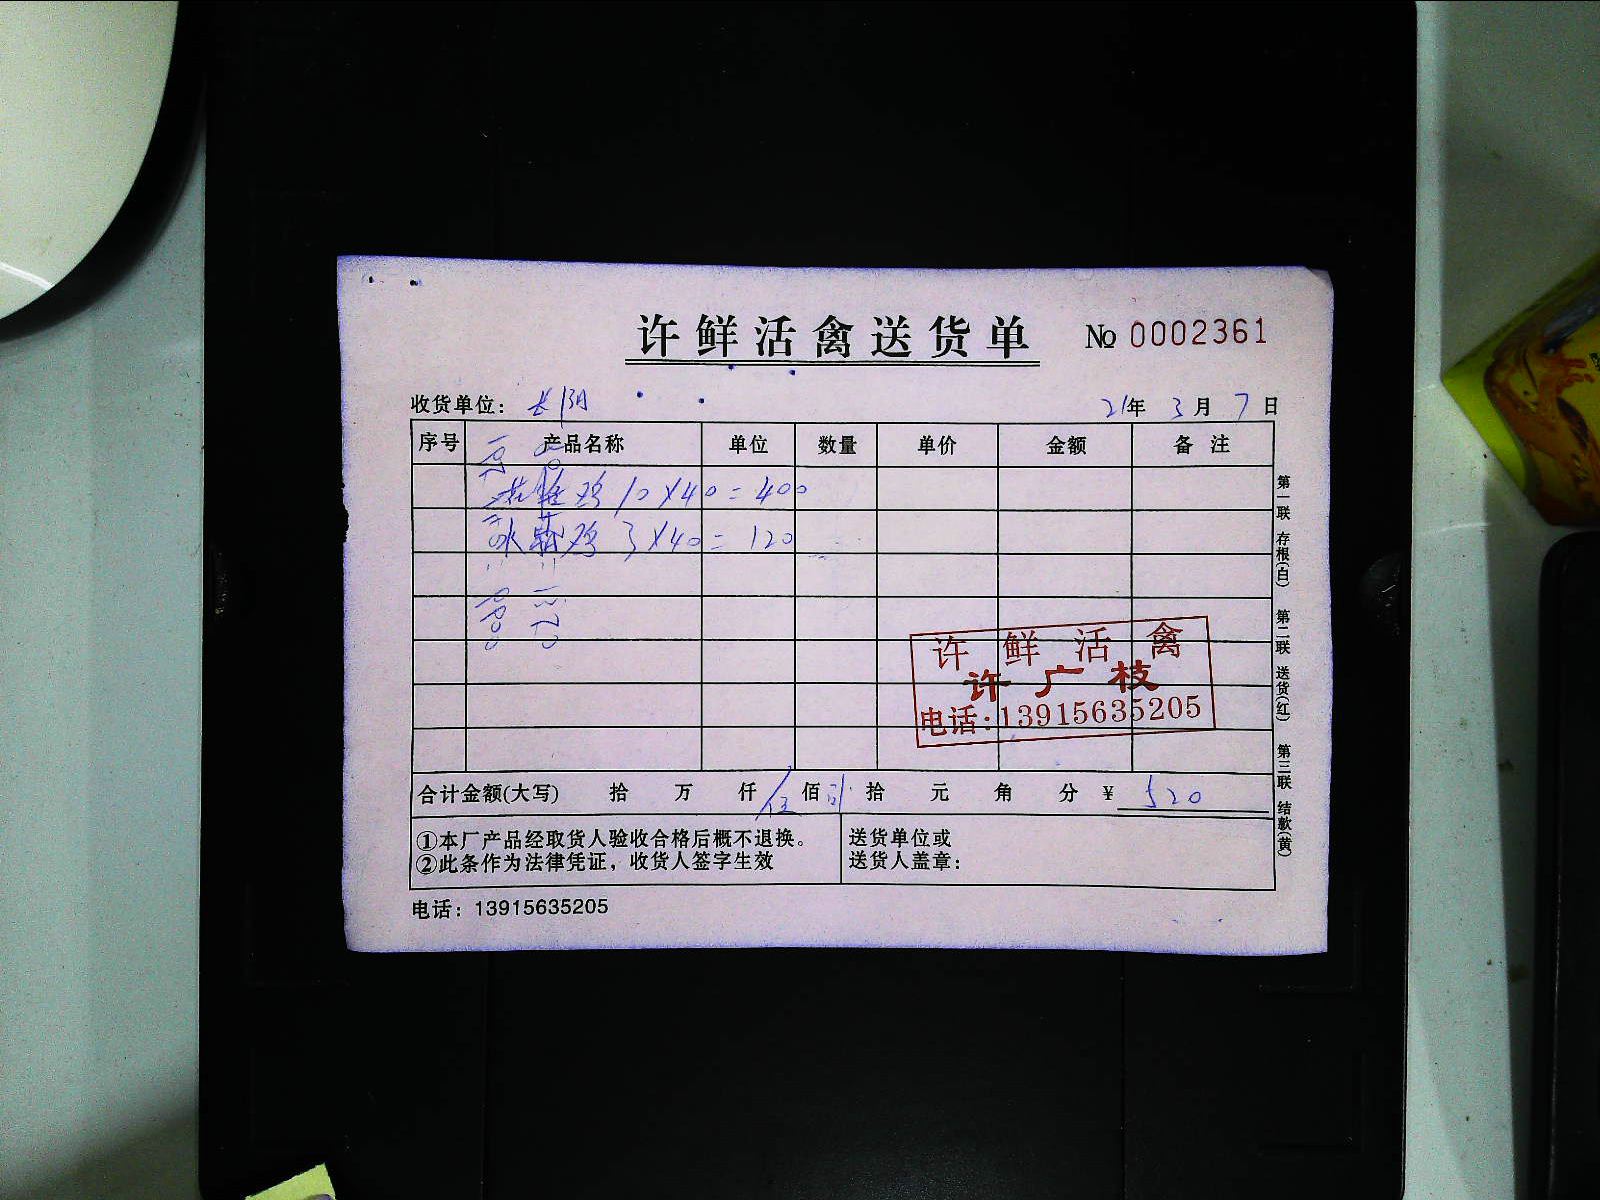 许鲜活禽送货单 № 0002361
收货单位： 21年 3月 7日
序号 产品名称 单位 数量 单价 金额 备注
鸡 10×40=400
鸡 3×40=120
许鲜活禽
许广枝
电话:13915635205
合计金额(大写) 拾 万 仟 伍佰 拾 元 角 分 ¥ 520
①本厂产品经取货人验收合格后概不退换。
②此条作为法律凭证，收货人签字生效
送货单位或
送货人盖章：
电话：13915635205
第一联 存根(白) 第二联 送货(红) 第三联 结款(黄)